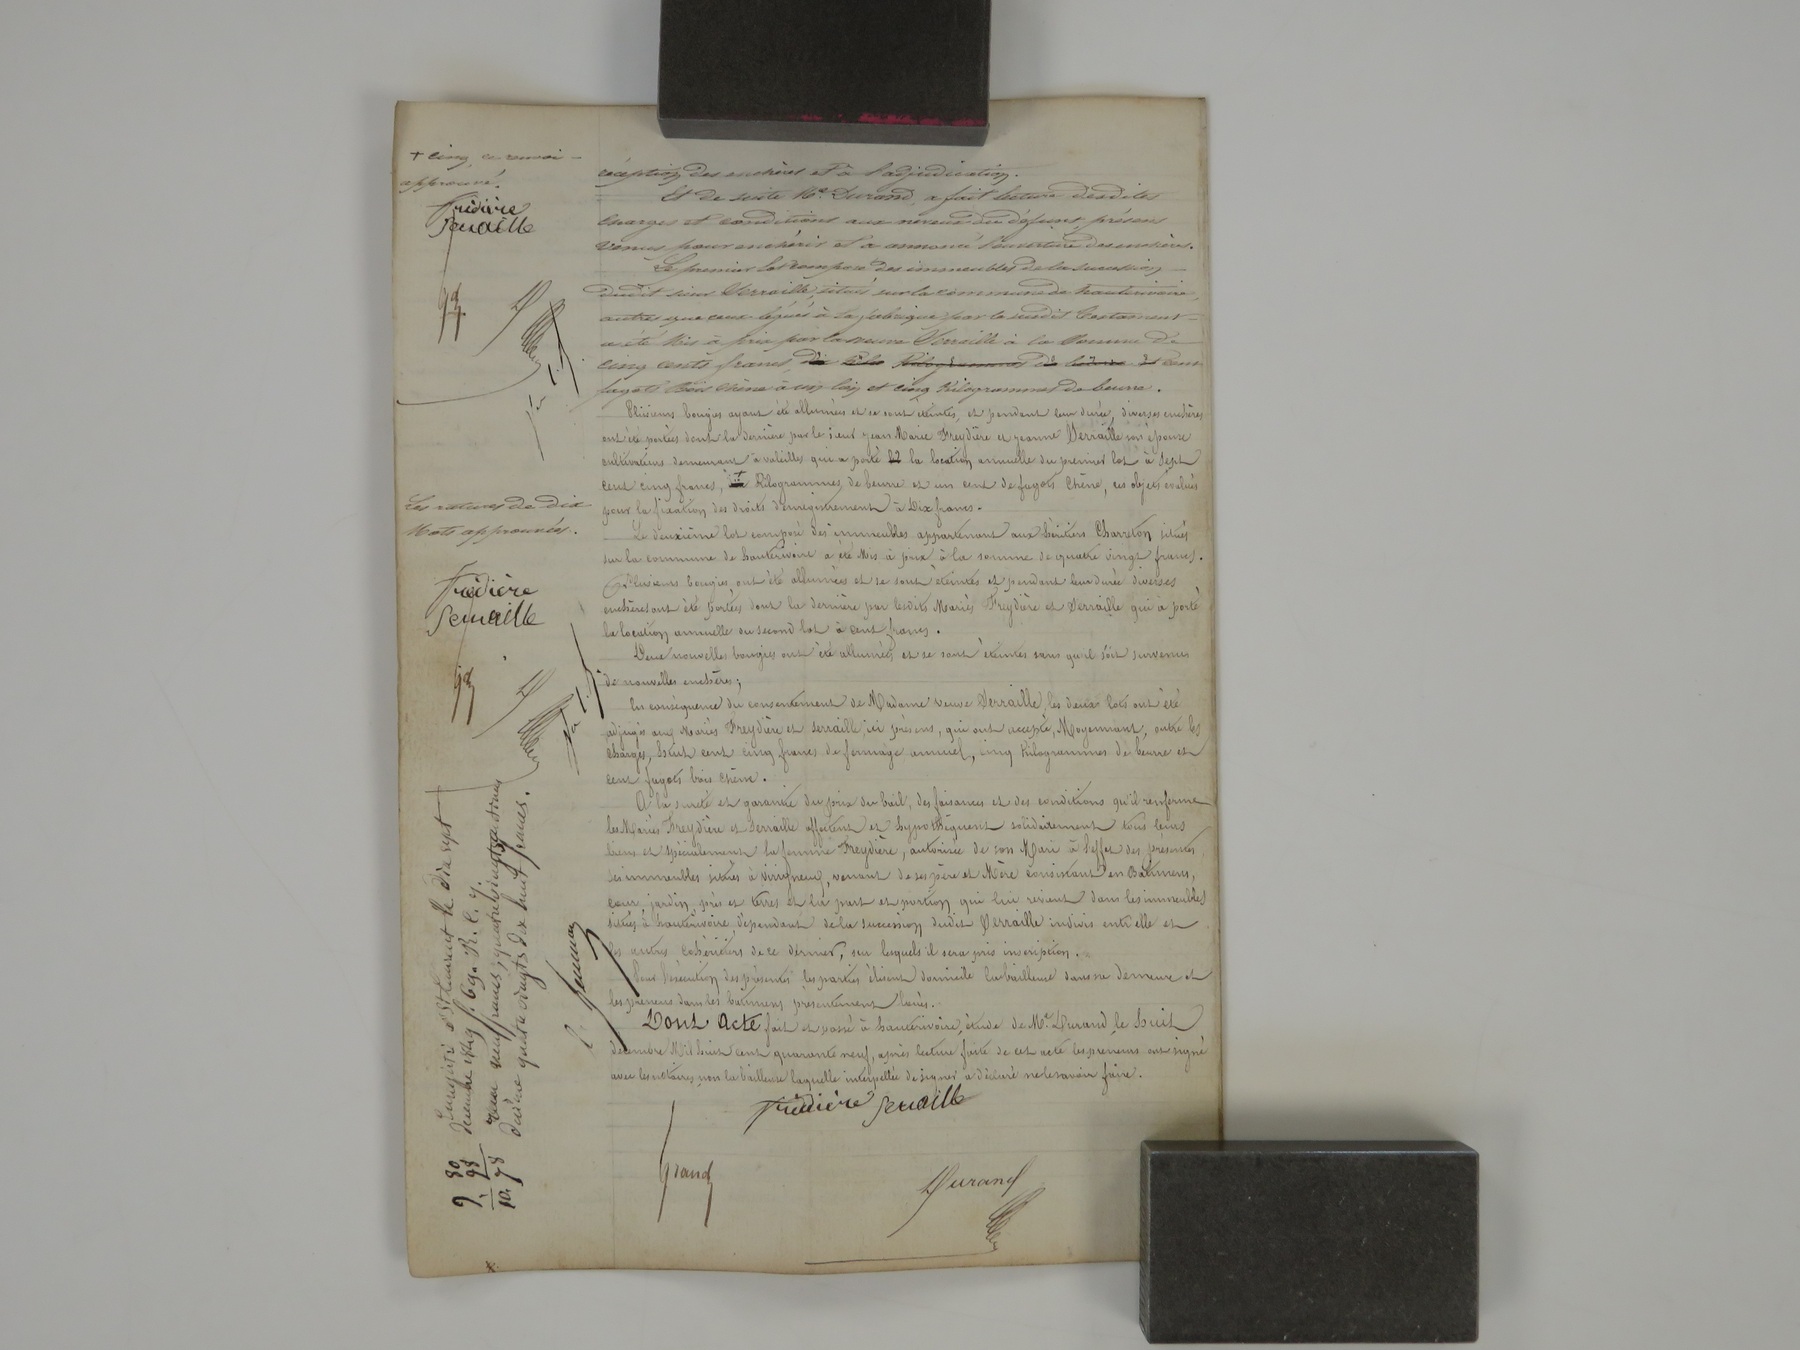 + cinq, ce renvoi
approuvé.
Frédière
Serraille
réception des enchères et à l'adjudication.
Et de suite Me. Durand, a fait lecture desdites
charges et conditions aux neveux du défunt, présens
venus pour enchérir et a annoncé l'ouverture des enchères.
Le premier lot composé des immeubles de la succession
dudit sieur Serraille, situés sur la commune de hauterivoire,
autres que ceux légués à la fabrique par le susdit testament
a été mis à prix par la veuve Serraille à la somme de
cinq cents francs, kilogrammes de beurre et cent
fagots bois chêne à un lien et cinq kilogrammes de beurre.
Plusieurs bougies ayant été allumées et se sont éteintes, et pendant leur durée, diverses enchères
ont été portées dont la dernière par le sieur Jean Marie Freydière et jeanne Serraille son épouse
cultivateurs demeurant à valeilles qui a porté la location annuelle du premier lot à Sept
cent cinq francs, + Kilogrammes de beurre et un cent de fagots Chêne, ces objets évalués
pour la fixation des droits d'enregistrement à Dix francs.
Le deuxième lot composé des immeubles appartenant aux héritiers Charreton situés
sur la commune de hauterivoire a été Mis à prix à la somme de quatre vingt francs.
Plusieurs bougies ont été allumées et se sont éteintes et pendant leur durée diverses
enchères ont été portées dont la dernière par lesdits Mariés Freydière et Serraille qui a porté
la location annuelle du second lot à cent francs.
Deux nouvelles bougies ont été allumées et se sont éteintes sans qu'il soit survenu
de nouvelles enchères;
En conséquence du consentement de Madame veuve Serraille, les deux lots ont été
adjugés aux Mariés Freydière et Serraille, ici présens, qui ont accepté, Moyennant, outre les
charges, huit cent cinq francs de fermage annuel, cinq Kilogrammes de beurre et
cent fagots bois chêne.
A la sureté et garantie du prix du bail, des faisances et des conditions qu'il renferme
les Mariés Freydière et Serraille affectent et hypothèquent solidairement tous leurs
biens et spécialement la femme Freydière, autorisée de son Mari à l'effet des présentes,
ses immeubles situés à virigneux, venant de ses père et Mère consistant en Batimens,
cour, jardin, prés et terres et la part et portion qui lui revient dans les immeubles
situés à hauterivoire, dépendant de la succession dudit Serraille indivis entr'elle et
les autres cohéritiers de ce dernier, sur lesquels il sera pris inscription.
Pour l'exécution des présentes les parties élisent domicile la bailleuse dans sa demeure et
les preneurs dans les batimens présentement loués.
Dont acte fait et passé à hauterivoire, étude de Me. Durand, le huit
décembre Mil huit cent quarante neuf, après lecture faite de cet acte les preneurs ont signé
avec les notaires, non la bailleuse laquelle interpellée de signer a déclaré ne le savoir faire.
Frédière Serraille
Grand
Durand
Les ratures de dix
Mots approuvées.
Frédière
Serraille
Enregistré à St Laurent le Dix sept
décembre
neuf francs, quatre vingts
décime quatre vingts dix huit francs.
9. 80
98
10. 78